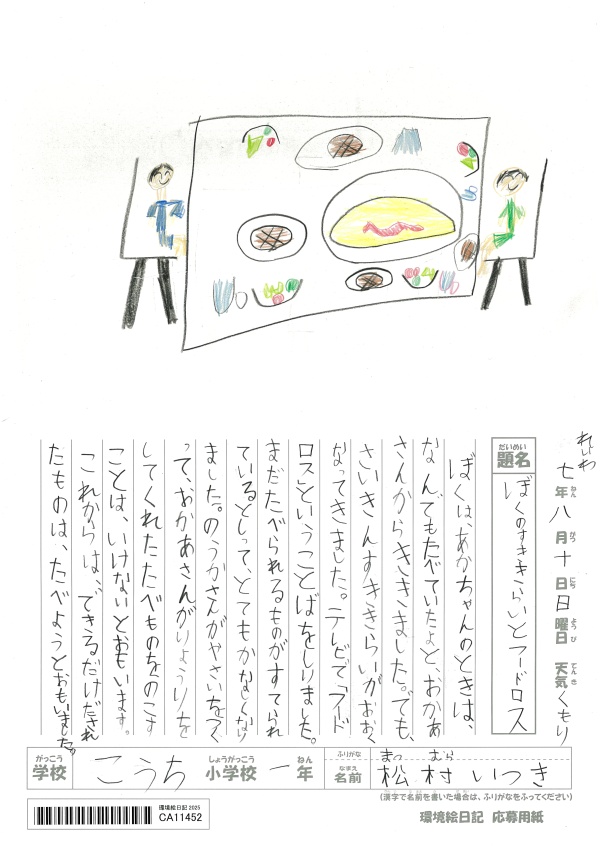 れいわ七年八月十日日曜日 天気くもり
ねん がつ にち ようび てんき
だいめい
題名 ぼくのすききらいとフードロス
ぼくは、あかちゃんのときは、
なんでもたべていたよと、おかあ
さんからききました。でも、
さいきんすききらいがおおく
なってきました。テレビで「フード
ロス」ということばをしりました。
まだたべられるものがすてられ
ているとしって、とてもかなしくなり
ました。のうかさんがやさいをつく
って、おかあさんがりょうりを
してくれたたべものを、のこす
ことは、いけないとおもいます。
これからは、できるだけだされ
たものは、たべようとおもいました。
がっこう しょうがっこう ねん ふりがな なまえ まつ むら
学校 こうち 小学校 一年 名前 松村いつき
(漢字で名前を書いた場合は、ふりがなをふってください)
環境絵日記 2025
CA11452
環境絵日記 応募用紙